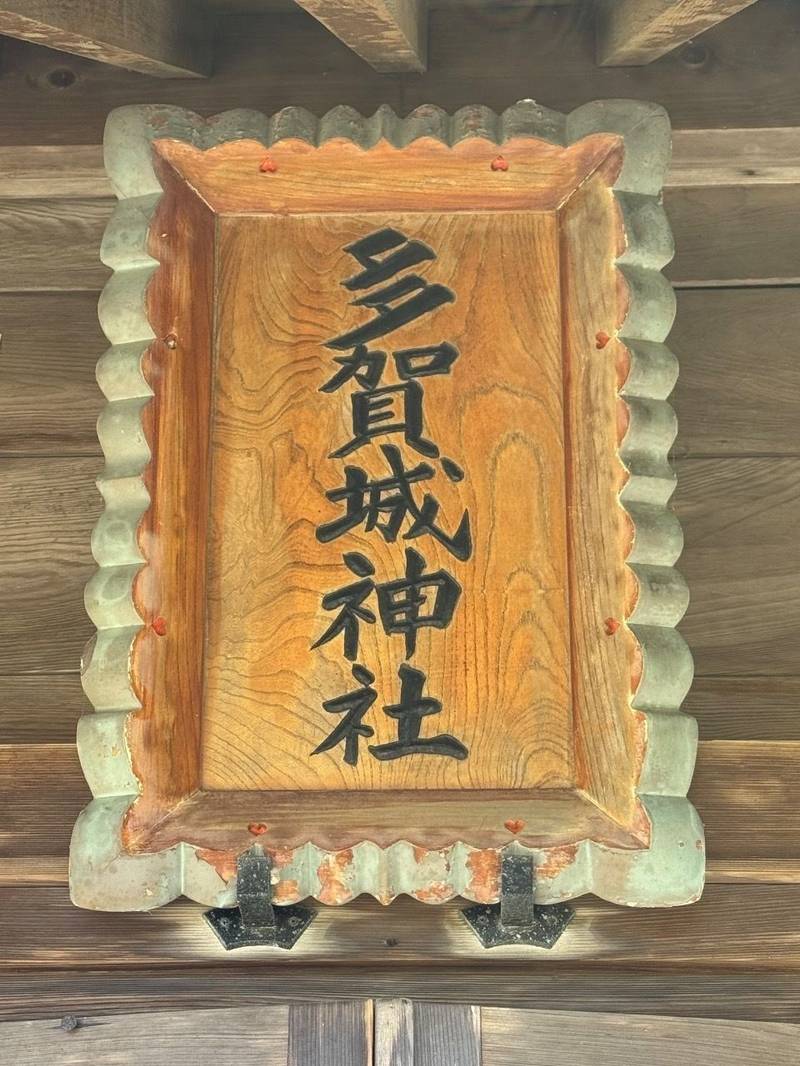 多賀城神社